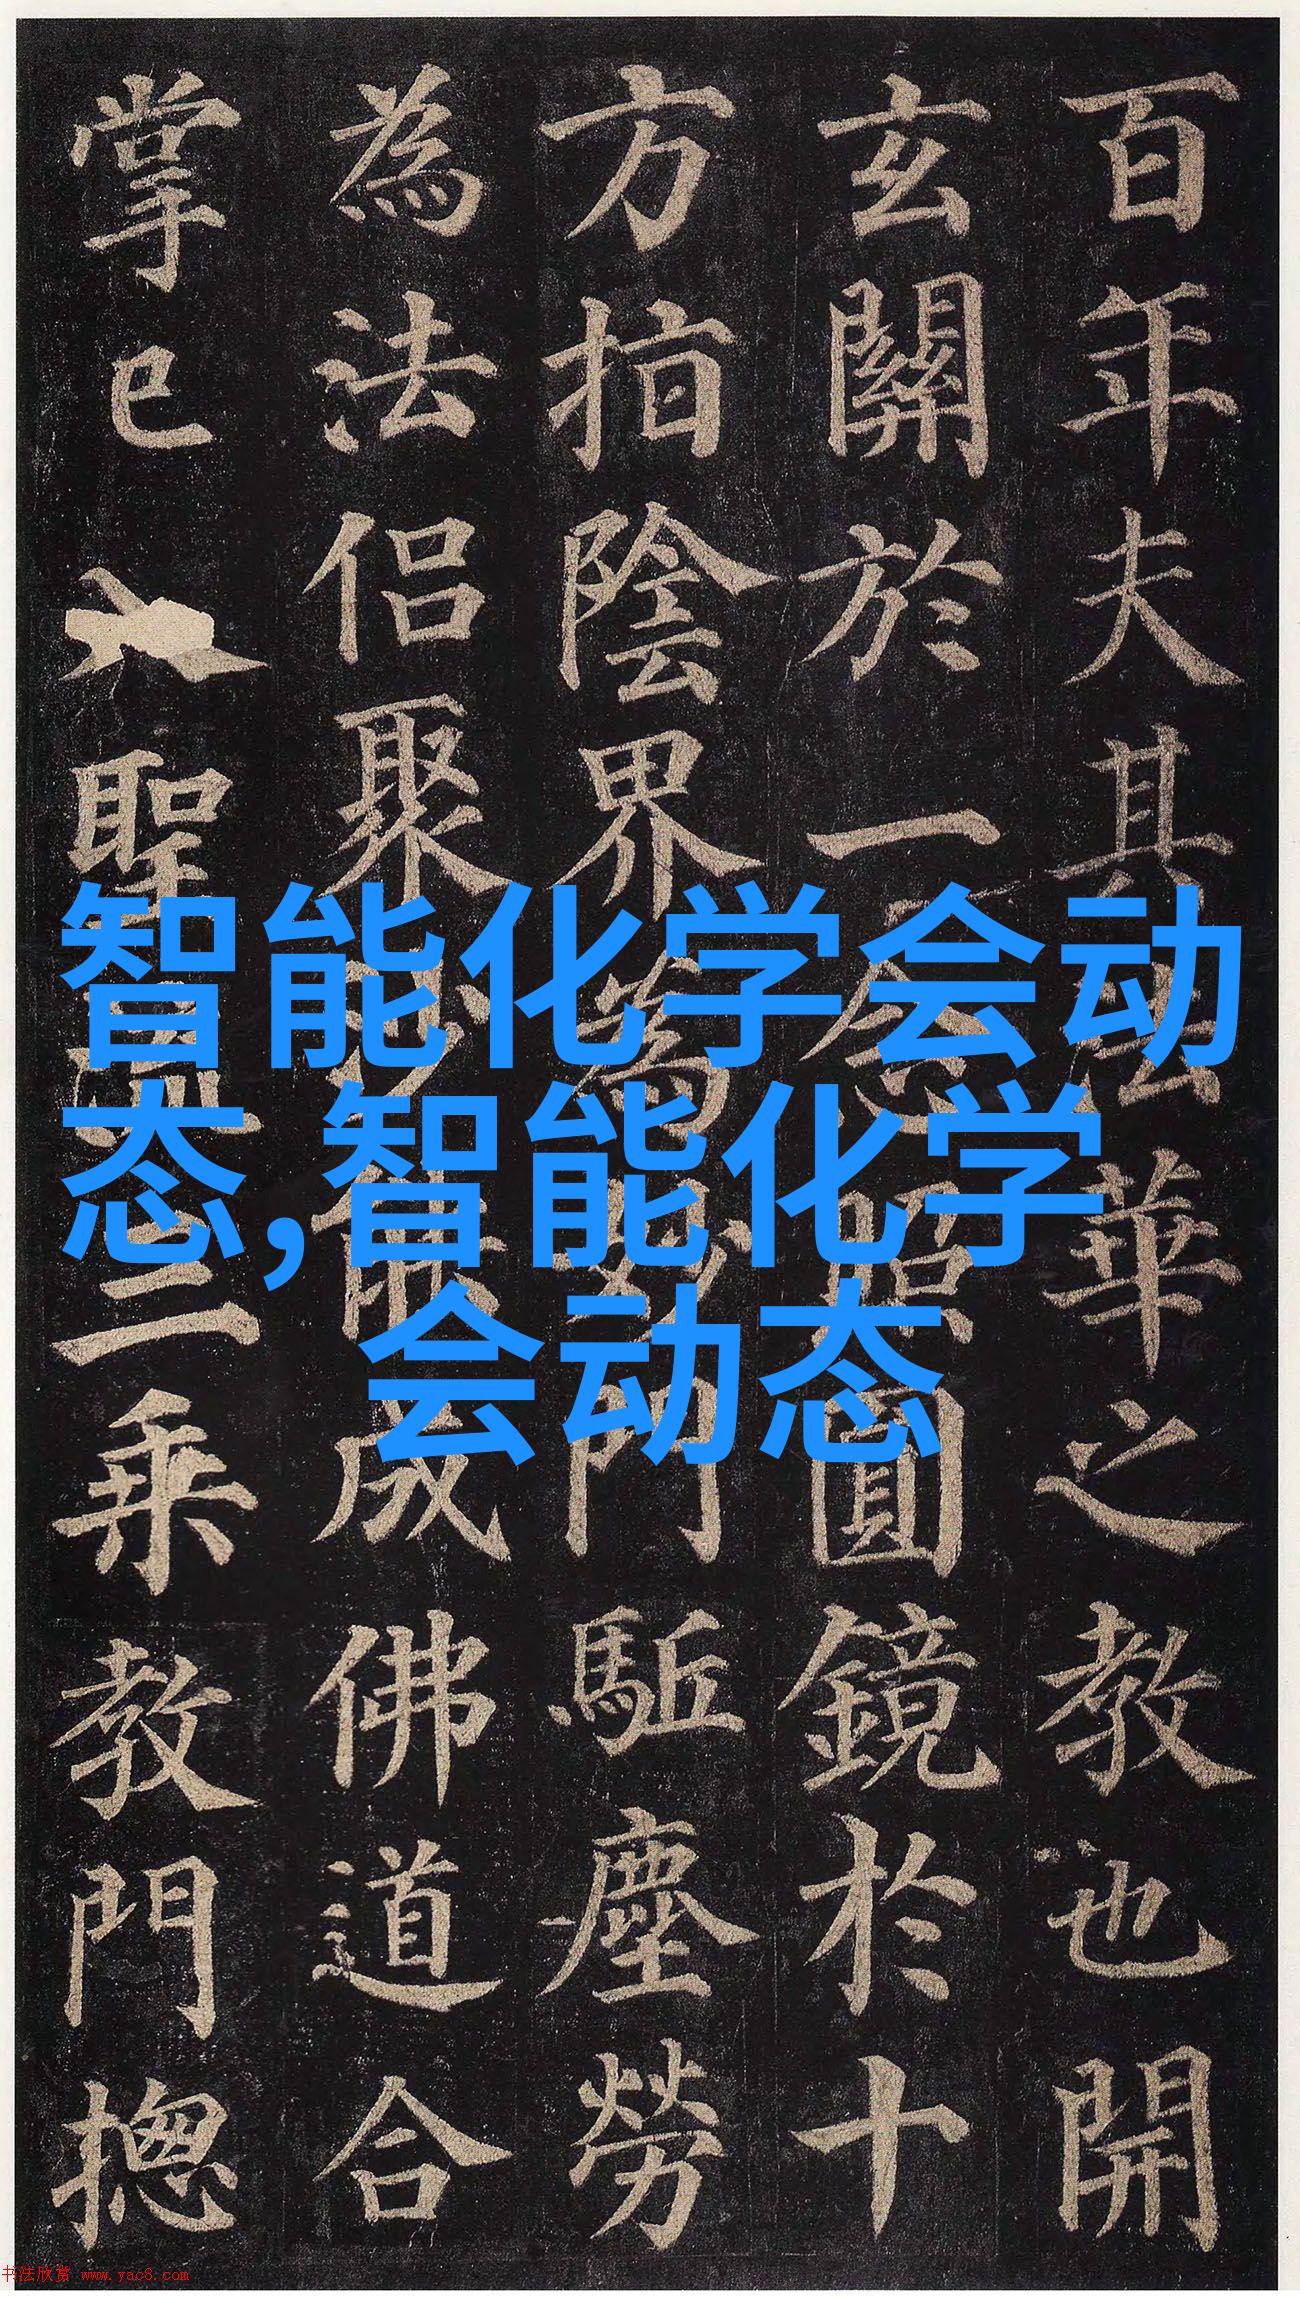 智能化学会动
态,智能化学
会动态
百年夫其法華之教也開
玄關於一念照圓鏡於十
方指陰界為妙門駈塵勞
為法侣聚沙能成佛道合
掌已入聖三乘教門揔
书法欣赏 www.yac8.com